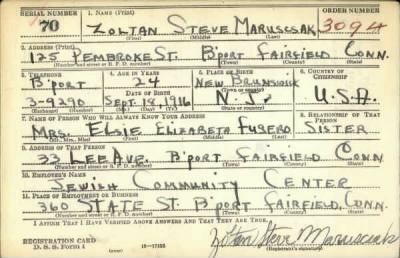 SERIAL NUMBER 1. NAME (Print) ORDER NUMBER
70 ZOLTAN STEVE MARUSCSAK 3094
(First) (Middle) (Last)
2. ADDRESS (Print)
125 PEMBROKE ST. B'PORT FAIRFIELD CONN.
(Number and street or R. F. D. number) (Town) (County) (State)
3. TELEPHONE 4. AGE IN YEARS 5. PLACE OF BIRTH 6. COUNTRY OF CITIZENSHIP
B'PORT 24 NEW BRUNSWICK
DATE OF BIRTH (Town or county)
3-9290 SEPT. 18, 1916 N. J. U.S.A.
(Exchange) (Number) (Mo.) (Day) (Yr.) (State or country)
7. NAME OF PERSON WHO WILL ALWAYS KNOW YOUR ADDRESS 8. RELATIONSHIP OF THAT PERSON
MRS. ELSIE ELIZABETH SISTER
(Mr., Mrs., Miss) (First) (Middle) (Last)
9. ADDRESS OF THAT PERSON
33 LEE AVE. B'PORT FAIRFIELD CONN
(Number and street or R. F. D. number) (Town) (County) (State)
10. EMPLOYER'S NAME
JEWISH COMMUNITY CENTER
11. PLACE OF EMPLOYMENT OR BUSINESS
360 STATE ST. B'PORT FAIRFIELD, CONN.
(Number and street or R. F. D. number) (Town) (County) (State)
I AFFIRM THAT I HAVE VERIFIED ABOVE ANSWERS AND THAT THEY ARE TRUE.
REGISTRATION CARD
D. S. S. Form 1 16—17105 Zoltan Steve Maruscsak
(Registrant's signature)